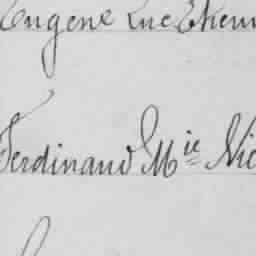 Eugene Luc Etienn
Ferdinand Mie Nic